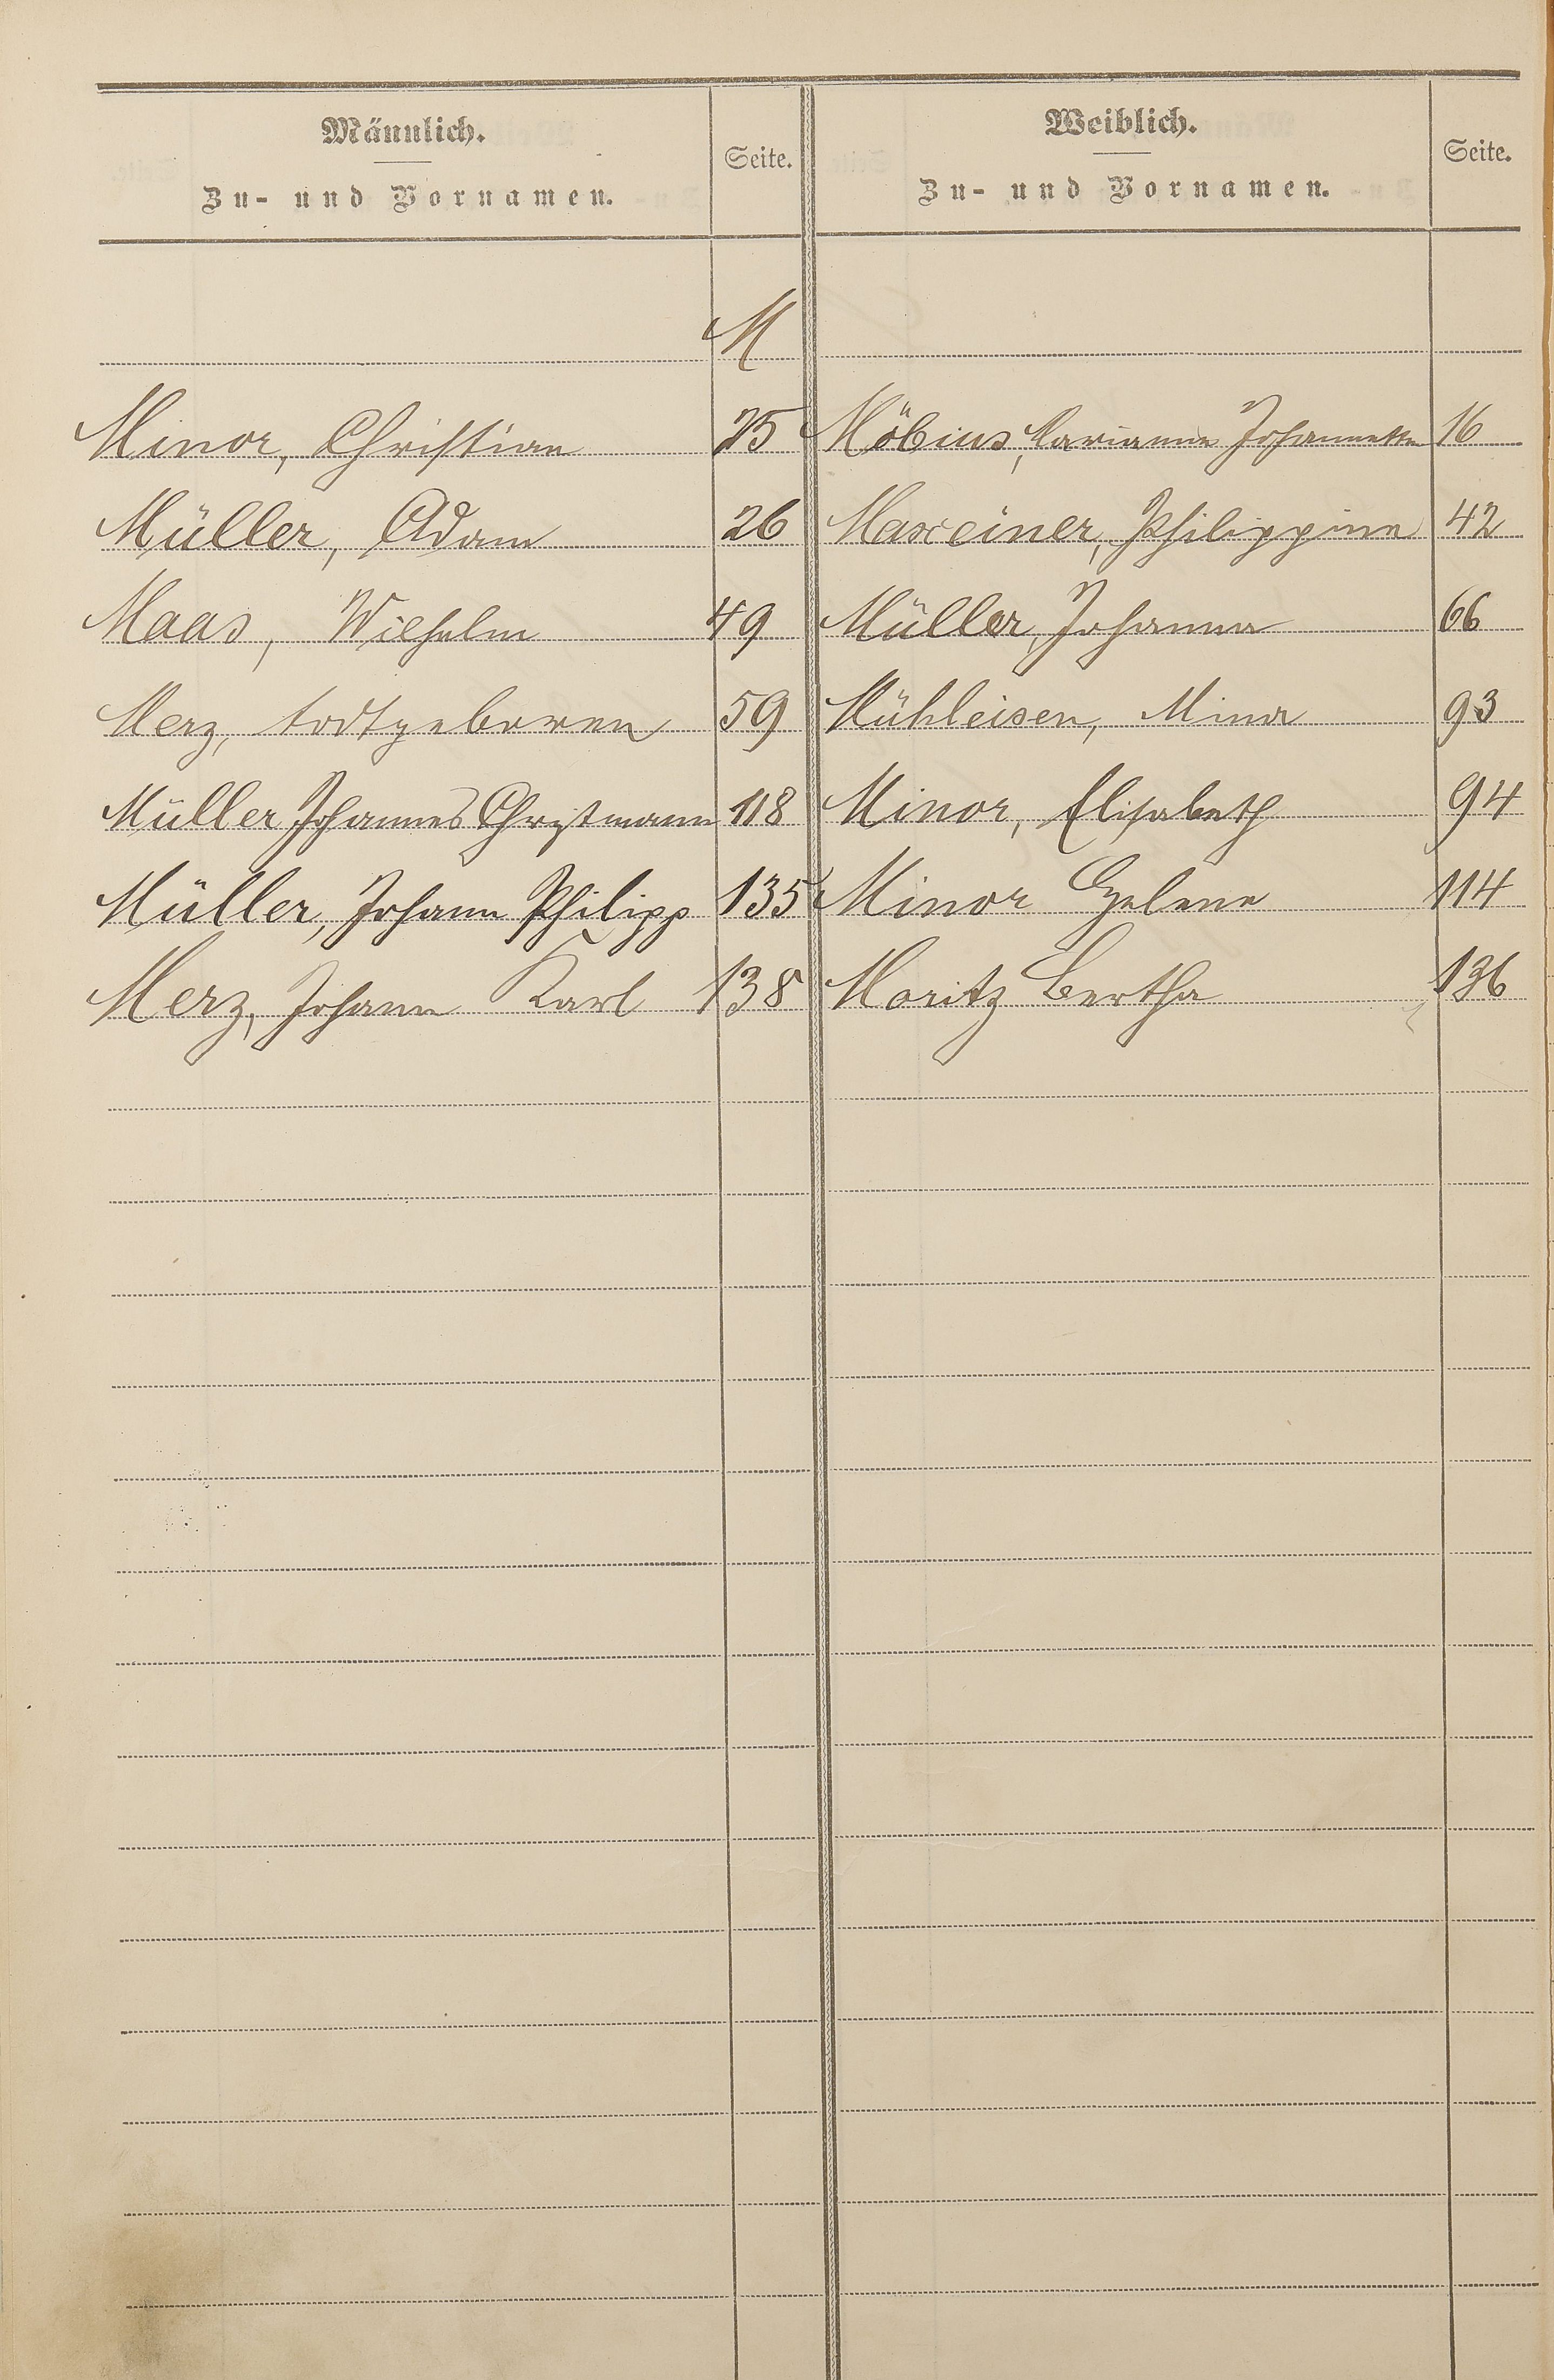 Männlich.
Zu- und Vornamen.
Seite.
Weiblich.
Zu- und Vornamen.
Seite.
M
Minor, Christian 25 Möbius, Marianne Johannette 16
Müller, Adam 26 Maxeiner, Philippine 42
Maas, Wilhelm 49 Müller, Johanna 66
Merz, todtgeboren 59 Mühleisen, Mina 93
Müller Johannes Christmann 118 Minor, Elisabeth 94
Müller, Johann Philipp 135 Minor Helene 114
Merz, Johann Karl 138 Moritz Bertha 136